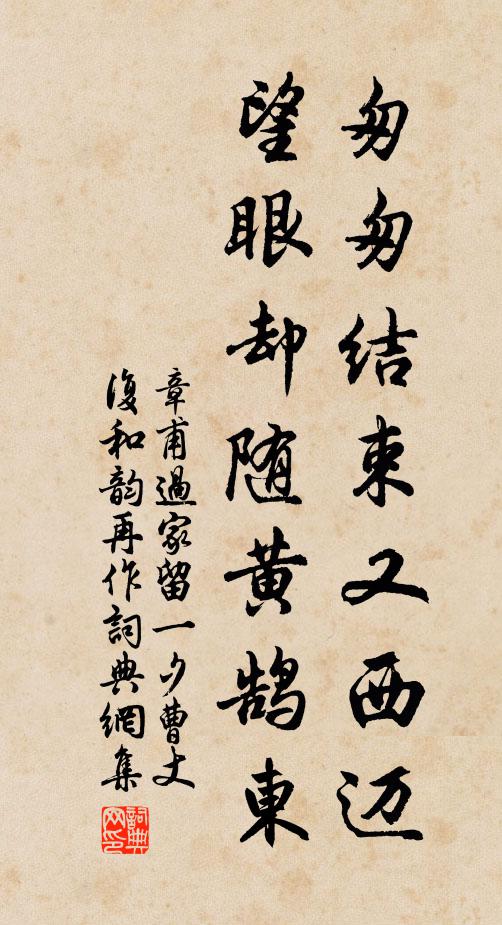 匆匆结束又西迈
望眼却随黄鹄東
章甫過家留一夕曹丈
復和韵再作詞典網集
詞典网印